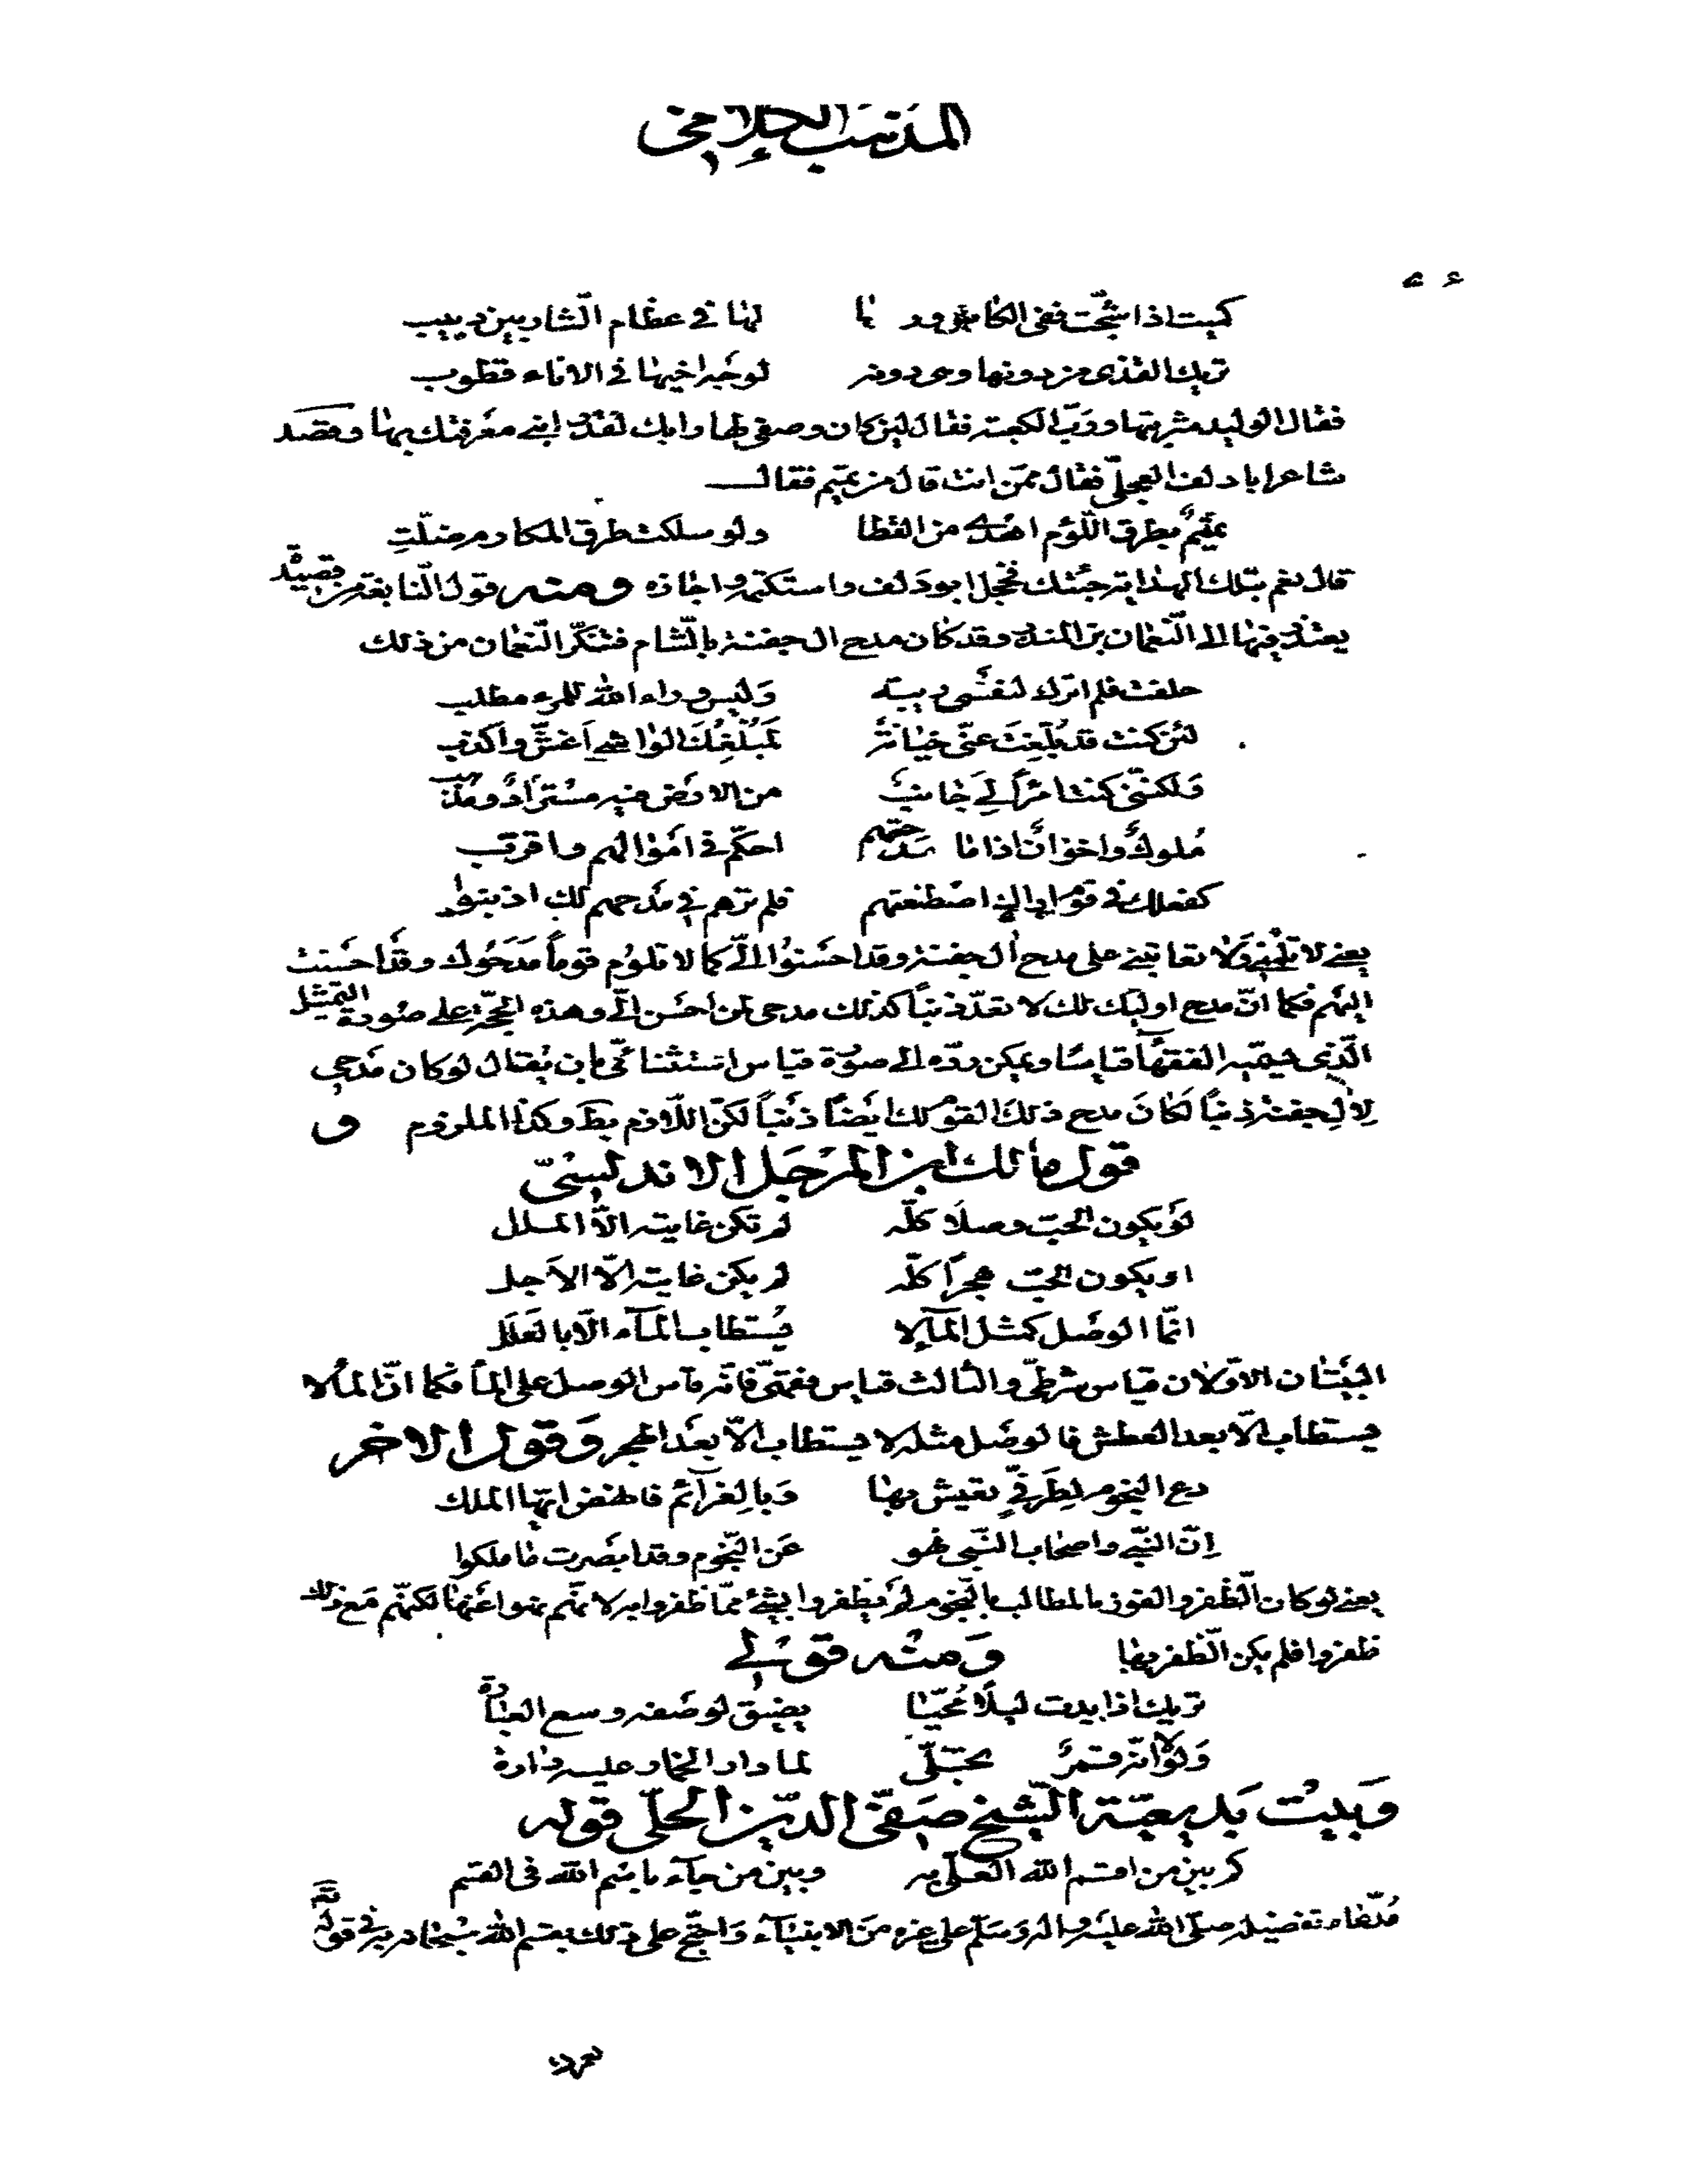 المذهب الكلامي
كميت اذا شجّت ففى الكاس وردها لها فى عظام الشاربين دبيب
تريك القذى من دونها وهى دونه لوجه اخيها فى الاناء قطوب
فقال الوليد شربتها وربّ الكعبة فقال لئن كان وصفى لها رابك لقد رابنى معرفتك بها وقصد
شاعر ابا دلف العجلىّ فقال ممّن انت قال من تميم فقال
تميمٌ بطرق اللّؤم اهدى من القطا ولو سلكت طرق المكارم ضلّتِ
قال نعم بتلك الهداية جئتك فخجل ابو دلف واستكتمه واجازه ومنه قول النّابغة من قصيدة
يعتذر فيها الى النّعمان بن المنذر وقد كان مدح ال جفنة بالشّام فتنكّر النّعمان من ذلك
حلفت فلم اترك لنفسك ريبة وَليس وراء الله للمرء مطلب
لئن كنت قد بُلّغتَ عنّى خيانةً لَمُبْلِغُكَ الواشى اَغشّ واكذب
وَلكنّنى كنت امرَأً لِىَ جانبٌ من الارض فيه مسترادٌ ومذهب
مُلوكٌ واخوانٌ اذا ما مدحتهم احكّم فى اموالهم واقرّب
كفعلك فى قوم اراك اصطنعتهم فلم ترهم فى مدحهم لك اذنبوا
يعنى لا تلمنى وَلا تعاتبنى على مدح ال جفنة وقد احسنوا الىّ كما لا تلوم قوماً مَدَحُوك وقد احسنت
اليهم فكما انّ مدح اولئك لك لا تعدّ ذنباً كذلك مدحى لمن احسن الىّ وهذه الحجّة على صورة التمثيل
الّذى يسمّيه الفقهآء قياسًا ويمكن ردّه الى صورة قياس استثنائىّ بان يُقال لو كان مَدحى
لِاٰلِ جفنة ذنباً لَكانَ مدح ذلك القوم لك ايضاً ذنباً لكنّ اللّازم بط وكذا الملزوم و
قول مالك ابن المرحَل الاندلسىّ
لوَ يكون الحبّ وصلًا كلّه لم تكن غايته الّا الملل
او يكون الحبّ هجراً كلّه لم يكن غايته الّا الاَجل
انّما الوصَل كمثل المآء لا يُستطاب المآء الّا بالعَلَل
البيتان الاوّلان قياس شرطىّ والثالث قياس فقهىّ فانّه قاس الوصل على المآ فكما انّ المآ لا
يستطاب الّا بعد العطش فالوصَل مثله لا يستطاب الّا بعد الهجر وَقول الاخر
دع النجوم لِطَرقىٍّ يعيش بها وَبالعَزآئم فانهض ايّها الملك
اِنّ النّبى واصحاب النّبى نهوا عَن النّجوم وقد ابصرت ما ملكوا
يعنى لو كان الظّفر والفوز بالمطالب بالنّجوم لم يظفروا بشئ ممّا ظفروا به لانّهم نهوا عَنها لكنّهم مَع ذلك
ظفروا فلم يكن الظّفر بها وَمنه قولى
تريك اذا بدت ليلًا مُحيّا يضيق لوصَفه وسع العبارة
وَلولا انّه قمرٌ تجلّى لما دار الخمار عليه دارة
وَبيتُ بَديعيّة الشّيخ صَفىّ الدّين الحلّى قوله
كم بين من اقسم الله العلىّ به وبين من جآء باسم الله فى القسم
مُدّعاه تفضيله صلّى الله عليه واله وسَلّم على غيره منَ الانبيآء وَاحتجّ على ذلك بقسم الله سُبحانه به فى قوله تع
لعمرك